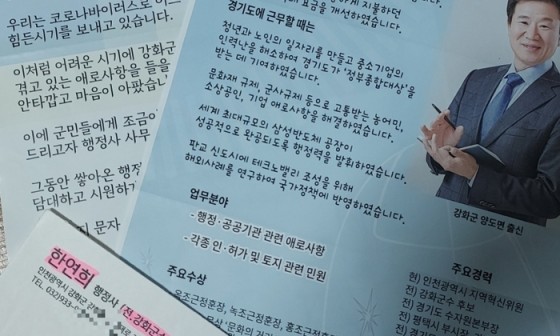 우리는 코로나바이러스로
힘든시기를 보내고 있습니다.
이처럼 어려운 시기에 강화군
겪고 있는 애로사항을 들을
안타깝고 마음이 아팠습니
이에 군민들에게 조금이
드리고자 행정사 사무
그동안 쌓아온 행정
담대하고 시원하게
문자
요금을 개선하였습니다.
경기도에 근무할 때는
청년과 노인의 일자리를 만들고 중소기업의
인력난을 해소하여 경기도가 '정부종합대상'을
받는 데 기여하였습니다.
문화재 규제, 군사규제 등으로 고통받는 농어민,
소상공인, 기업 애로사항을 해결하였습니다.
세계 최대규모의 삼성반도체 공장이
성공적으로 완공되도록 행정력을 발휘하였습니다.
판교 신도시에 테크노밸리 조성을 위해
해외사례를 연구하여 국가정책에 반영하였습니다.
업무분야
- 행정·공공기관 관련 애로사항
- 각종 인·허가 및 토지 관련 민원
주요수상
옥조근정훈장, 녹조근정훈장, 홍조근정훈장
강화군 양도면 출신
주요경력
현) 인천광역시 지역혁신위원
전) 강화군수 후보
전) 경기도 수자원본부장
전) 평택시 부시장
한연희 행정사 (전. 강화군
인천광역시 강화군 강화
TEL. 032)933-